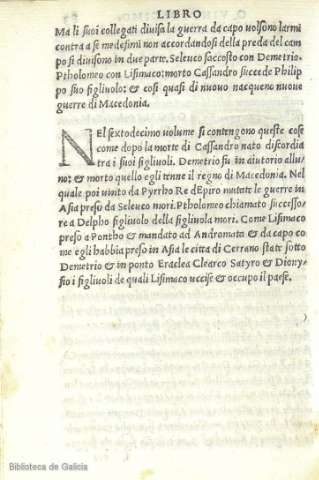 LIBRO
Ma li suoi collegati divisa la guerra da capo volsono larmi
contra a se medesimi non accordandosi della preda del cam
po si divisono in due parte. Seleuco saccosto con Demetrio.
Ptholomeo con Lisimaco: morto Cassandro succede Philip
po suo figliuolo: & cosi quasi di nuovo nacqueno nuove
guerre di Macedonia.
NEl sextodecimo volume si contengono queste cose
come dopo la morte di Cassandro nato discordia
tra i suoi figliuoli. Demetrio fu in aiutorio alluno
no: & morto quello egli tenne il regno di Macedonia. Nel
quale poi vinto da Pyrrho Re dEpiro mutate le guerre in
Asia preso da Seleuco mori. Ptholomeo chiamato successo
re a Delpho figliuolo della figliuola mori. Come Lisimaco
preso a Pontho & mandato ad Andromato & da capo co
me egli habbia preso in Asia le citta di Cerrano state sotto
Demetrio & in ponto Eraclea Clearco Satyro & Diony-
sio i figliuoli de quali Lisimaco uccise & occupo il paese.
Biblioteca de Galicia